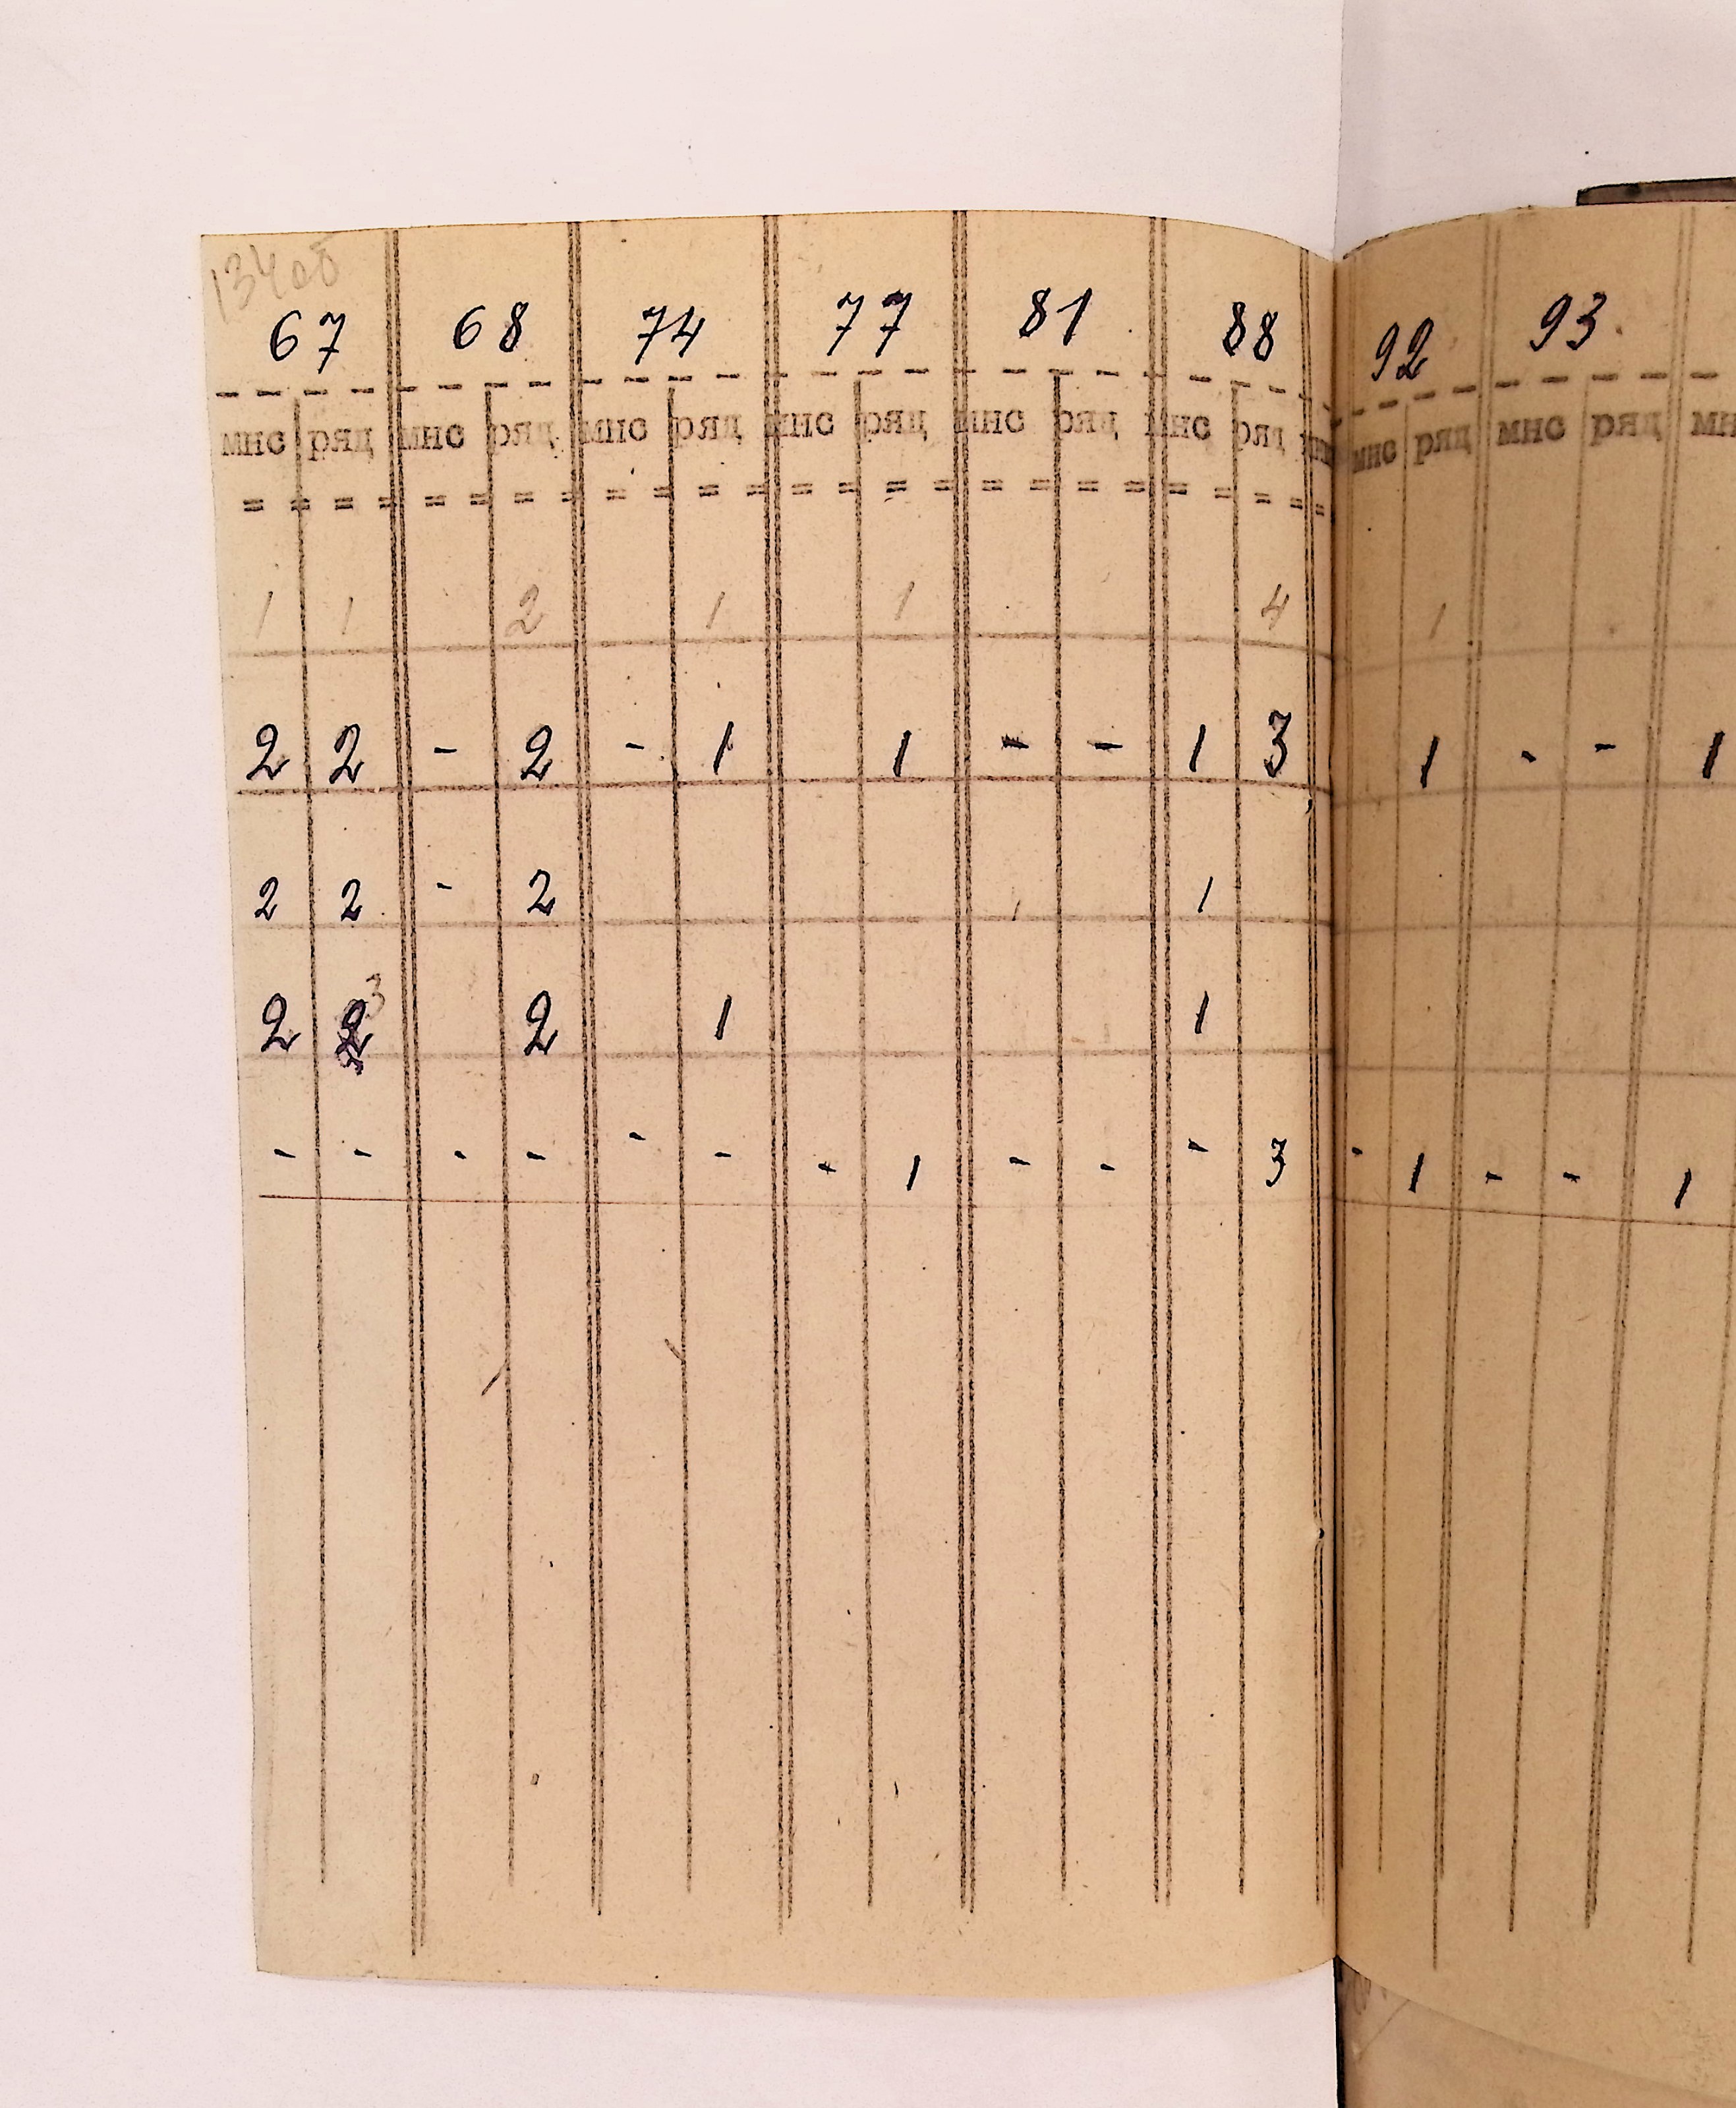 67 68 74 77 81 88 92 93.
мнс ряд мнс ряд мнс ряд мнс ряд мнс ряд мнс ряд мнс ряд мнс ряд
1 1 2 1 1 4 1
2 2 - 2 - 1 1 - - 1 3 1 - - 1
2 2 - 2 1
3
2 2 2 1 1
- - - - - - - 1 - - - 3 - 1 - - 1